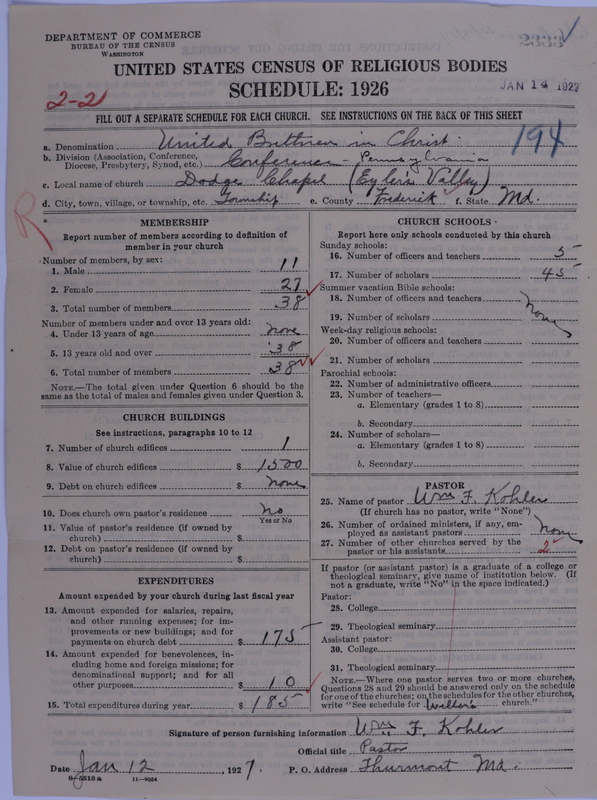 DEPARTMENT OF COMMERCE
BUREAU OF THE CENSUS
WASHINGTON
UNITED STATES CENSUS OF RELIGIOUS BODIES
SCHEDULE: 1926
JAN 14 1927
2-2
FILL OUT A SEPARATE SCHEDULE FOR EACH CHURCH. SEE INSTRUCTIONS ON THE BACK OF THIS SHEET
194
a. Denomination United Brethren in Christ
b. Division (Association, Conference, Diocese, Presbytery, Synod, etc.) Conference - Pennsylvania
c. Local name of church Dodge Chapel (Eylers Valley)
d. City, town, village, or township, etc. Township e. County Frederick f. State Md.
R
MEMBERSHIP
Report number of members according to definition of
member in your church
Number of members, by sex:
1. Male 11
2. Female 27
3. Total number of members 38
Number of members under and over 13 years old:
4. Under 13 years of age none
5. 13 years old and over 38
6. Total number of members 38
NOTE.—The total given under Question 6 should be the
same as the total of males and females given under Question 3.
CHURCH BUILDINGS
See instructions, paragraphs 10 to 12
7. Number of church edifices 1
8. Value of church edifices $ 1500
9. Debt on church edifices $ none
10. Does church own pastor's residence no
Yes or No
11. Value of pastor's residence (if owned by
church) $
12. Debt on pastor's residence (if owned by
church) $
EXPENDITURES
Amount expended by your church during last fiscal year
13. Amount expended for salaries, repairs,
and other running expenses; for im-
provements or new buildings; and for
payments on church debt $ 175
14. Amount expended for benevolences, in-
cluding home and foreign missions; for
denominational support; and for all
other purposes $ 10
15. Total expenditures during year $ 185
CHURCH SCHOOLS
Report here only schools conducted by this church
Sunday schools:
16. Number of officers and teachers 5
17. Number of scholars 45
Summer vacation Bible schools:
18. Number of officers and teachers none
19. Number of scholars
Week-day religious schools:
20. Number of officers and teachers
21. Number of scholars
Parochial schools:
22. Number of administrative officers
23. Number of teachers—
a. Elementary (grades 1 to 8)
b. Secondary
24. Number of scholars—
a. Elementary (grades 1 to 8)
b. Secondary
PASTOR
25. Name of pastor Wm F. Kohler
(If church has no pastor, write "None")
26. Number of ordained ministers, if any, em-
ployed as assistant pastors none
27. Number of other churches served by the
pastor or his assistants 2
If pastor (or assistant pastor) is a graduate of a college or
theological seminary, give name of institution below. (If
not a graduate, write "No" in the space indicated.)
Pastor:
28. College
29. Theological seminary
Assistant pastor:
30. College
31. Theological seminary
NOTE.—Where one pastor serves two or more churches,
Questions 28 and 29 should be answered only on the schedule
for one of the churches; on the schedules for the other churches,
write "See schedule for Weller's church."
Signature of person furnishing information Wm F. Kohler
Official title Pastor
Date Jan 12, 1927. P. O. Address Thurmont Md.
8-5518 a 11-9024